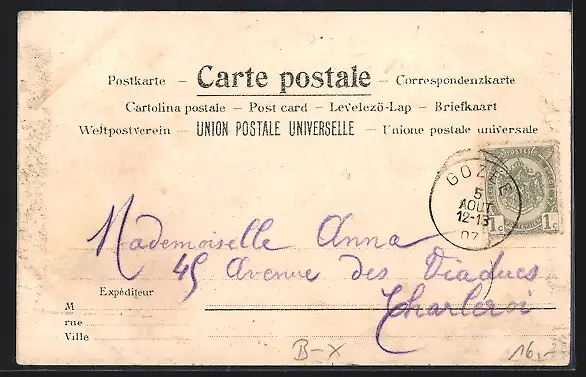 Postkarte – Carte postale – Correspondenzkarte
Cartolina postale – Post card – Levelezö-Lap – Briefkaart
Weltpostverein – UNION POSTALE UNIVERSELLE – Unione postale universale
GOZÉE
5
AOUT
12-13
07
1c 1c
Mademoiselle Anna
45 Avenue des Viaducs
Charleroi
Expéditeur
M
rue
Ville
B-X
16,-